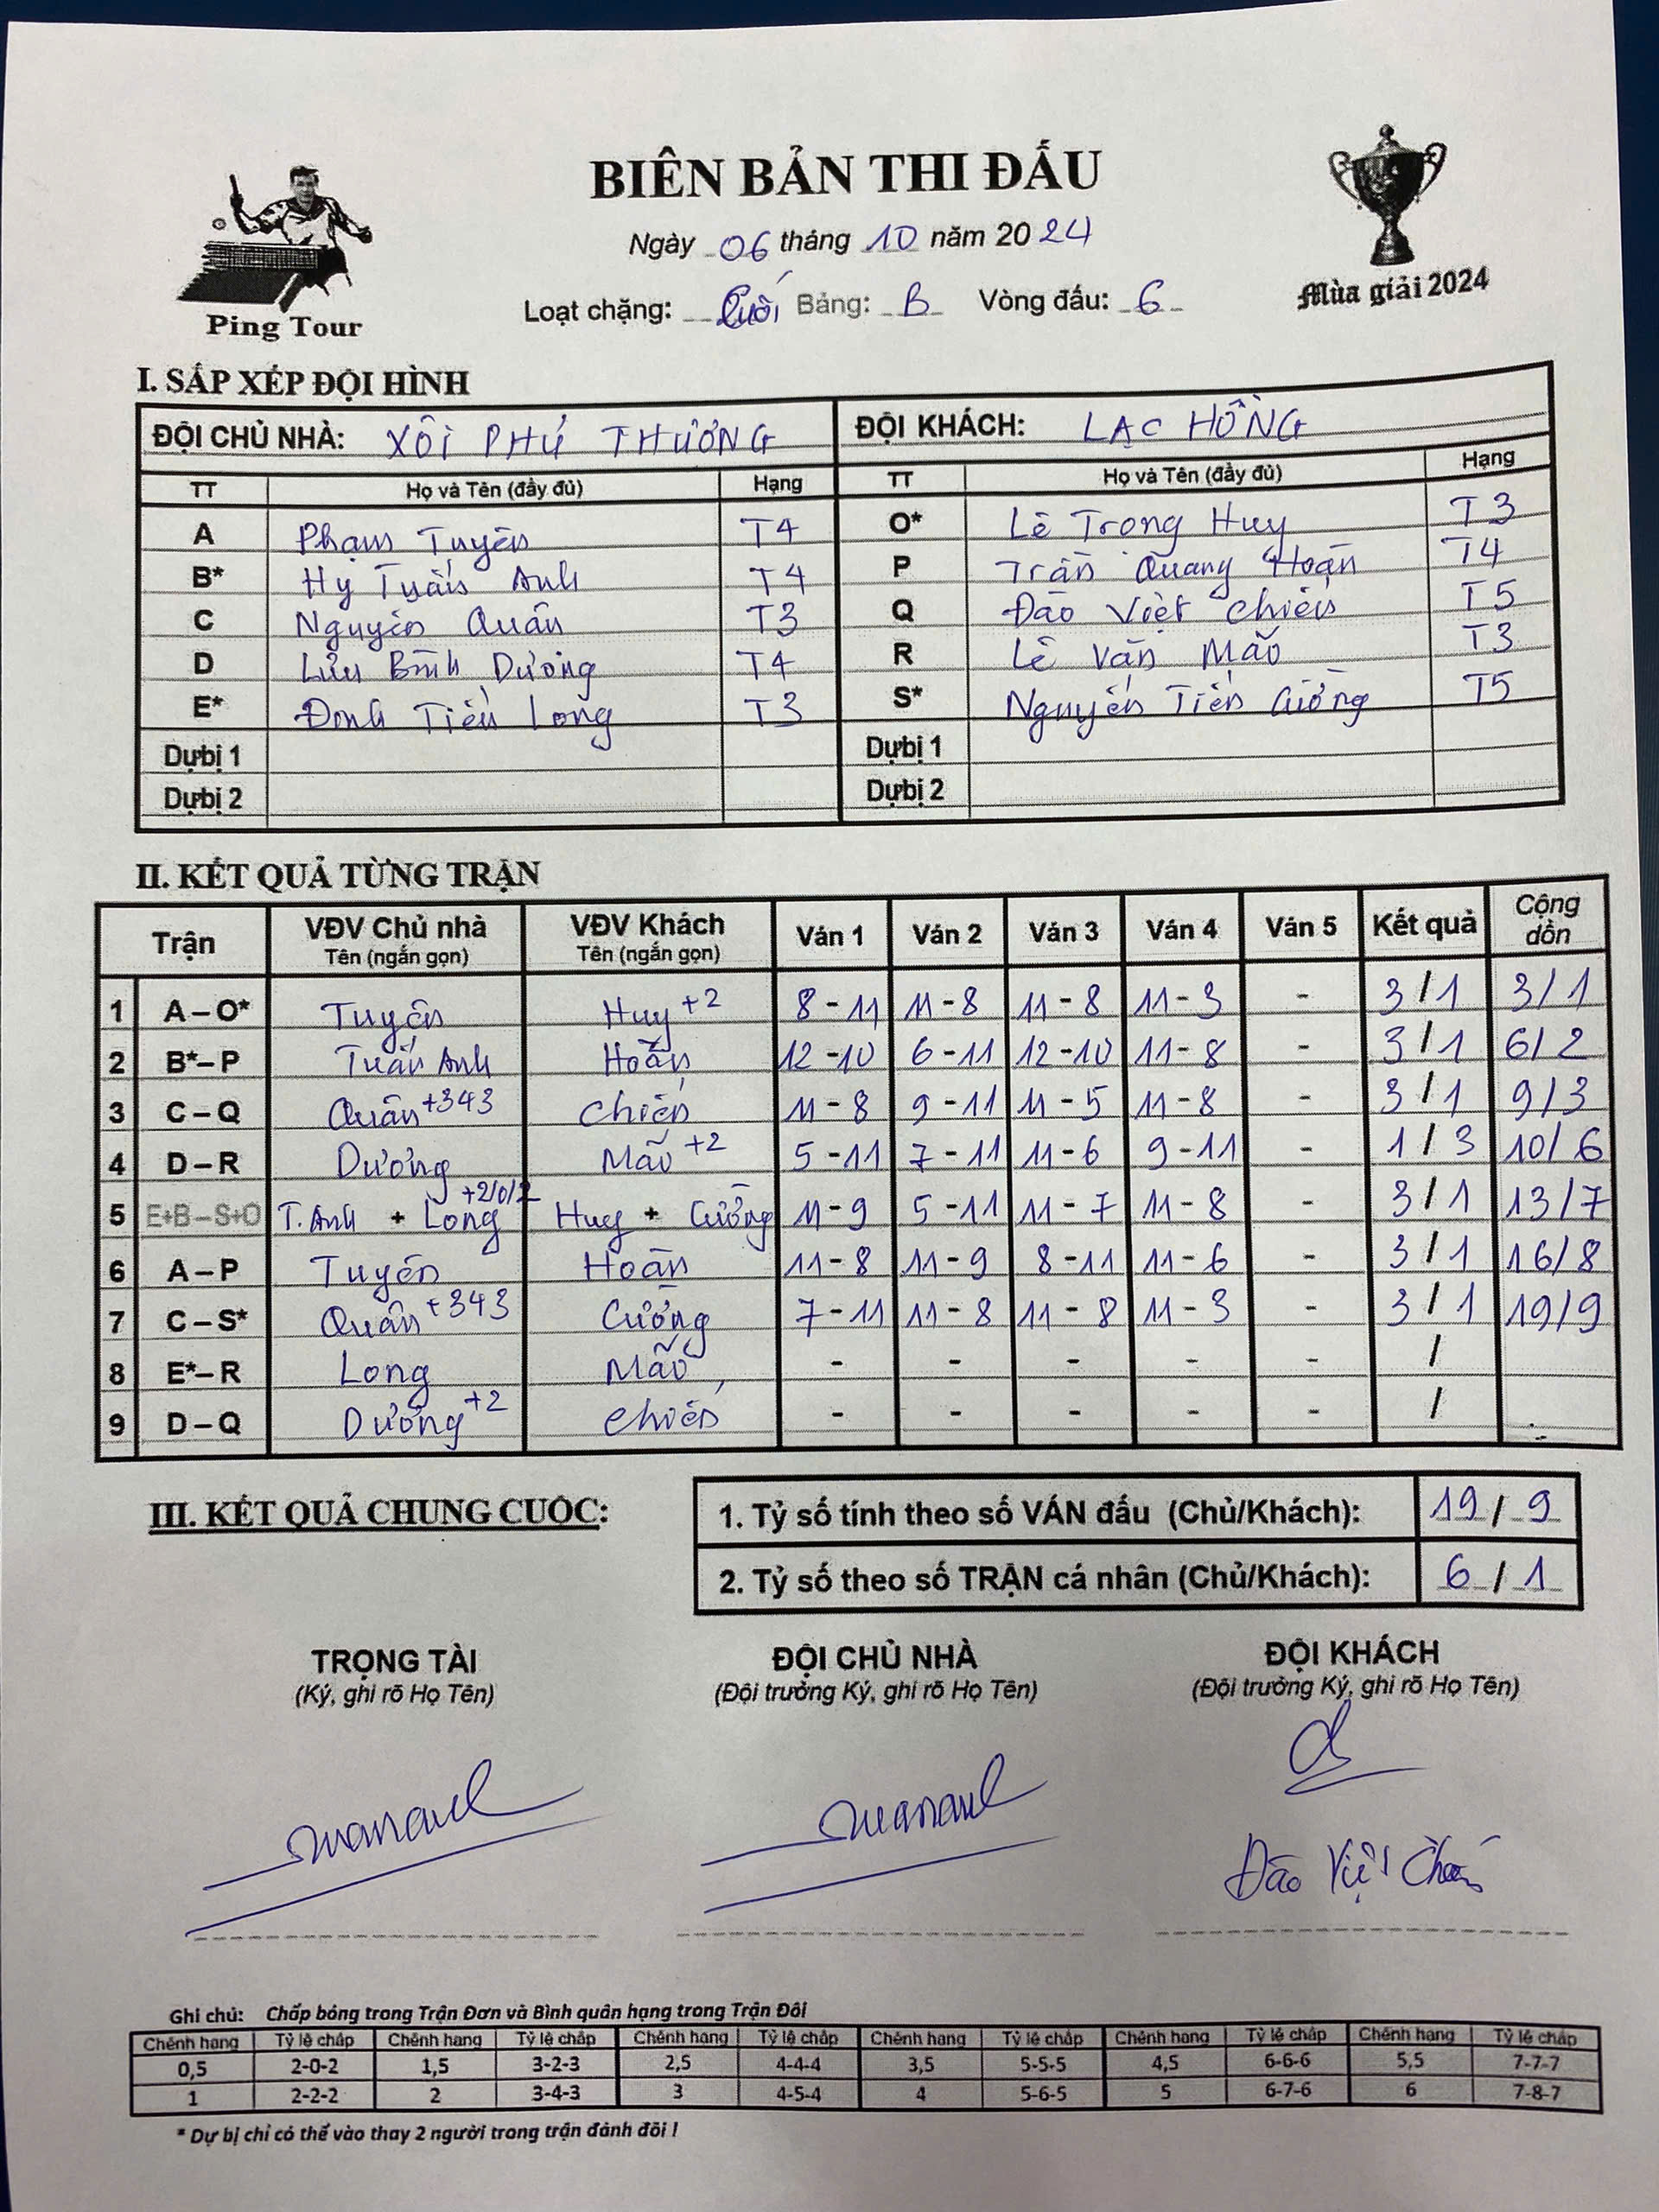 BIÊN BẢN THI ĐẤU
Ngày 06 tháng 10 năm 2024
Loạt chặng: Cuối Bảng: B Vòng đấu: 6
Ping Tour
Mùa giải 2024
I. SẮP XẾP ĐỘI HÌNH
ĐỘI CHỦ NHÀ: XÔI PHÚ THƯỢNG ĐỘI KHÁCH: LẠC HỒNG
TT Họ và Tên (đầy đủ) Hạng TT Họ và Tên (đầy đủ) Hạng
A Phạm Tuyên T4 O* Lê Trọng Huy T3
B* Hy Tuấn Anh T4 P Trần Quang Hoàn T4
C Nguyễn Quân T3 Q Đào Việt Chiến T5
D Lưu Bình Dương T4 R Lê Văn Mão T3
E* Đinh Tiến Long T3 S* Nguyễn Tiến Cường T5
Dự bị 1 Dự bị 1
Dự bị 2 Dự bị 2
II. KẾT QUẢ TỪNG TRẬN
Trận VĐV Chủ nhà Tên (ngắn gọn) VĐV Khách Tên (ngắn gọn) Ván 1 Ván 2 Ván 3 Ván 4 Ván 5 Kết quả Cộng dồn
1 A – O* Tuyên Huy +2 8 - 11 11 - 8 11 - 8 11 - 3 - 3 / 1 3/1
2 B* – P Tuấn Anh Hoàn 12 - 10 6 - 11 12 - 10 11 - 8 - 3 / 1 6/2
3 C – Q Quân +343 Chiến 11 - 8 9 - 11 11 - 5 11 - 8 - 3 / 1 9/3
4 D – R Dương Mão +2 5 - 11 7 - 11 11 - 6 9 - 11 - 1 / 3 10/6
5 E+B – S+O T.Anh + Long +2/0/2 Huy + Cường 11 - 9 5 - 11 11 - 7 11 - 8 - 3 / 1 13/7
6 A – P Tuyên Hoàn 11 - 8 11 - 9 8 - 11 11 - 6 - 3 / 1 16/8
7 C – S* Quân +343 Cường 7 - 11 11 - 8 11 - 8 11 - 3 - 3 / 1 19/9
8 E* – R Long Mão - - - - - /
9 D – Q Dương +2 Chiến - - - - - /
III. KẾT QUẢ CHUNG CUỘC:
1. Tỷ số tính theo số VÁN đấu (Chủ/Khách): 19 / 9
2. Tỷ số theo số TRẬN cá nhân (Chủ/Khách): 6 / 1
TRỌNG TÀI ĐỘI CHỦ NHÀ ĐỘI KHÁCH
(Ký, ghi rõ Họ Tên) (Đội trưởng Ký, ghi rõ Họ Tên) (Đội trưởng Ký, ghi rõ Họ Tên)
Đào Việt Chiến
Ghi chú: Chấp bóng trong Trận Đơn và Bình quân hạng trong Trận Đôi
Chênh hạng Tỷ lệ chấp Chênh hạng Tỷ lệ chấp Chênh hạng Tỷ lệ chấp Chênh hạng Tỷ lệ chấp Chênh hạng Tỷ lệ chấp Chênh hạng Tỷ lệ chấp
0,5 2-0-2 1,5 3-2-3 2,5 4-4-4 3,5 5-5-5 4,5 6-6-6 5,5 7-7-7
1 2-2-2 2 3-4-3 3 4-5-4 4 5-6-5 5 6-7-6 6 7-8-7
* Dự bị chỉ có thể vào thay 2 người trong trận đánh đôi !